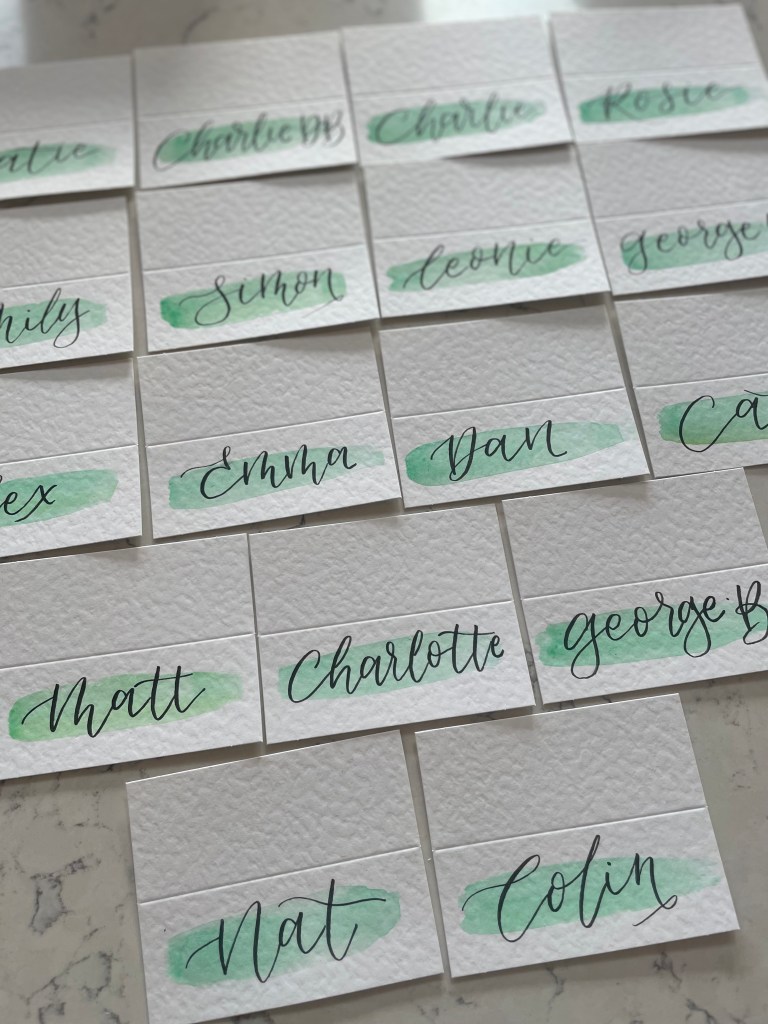 atie
Charlie BB
Charlie
Rosie
mily
Simon
Leonie
George
ex
Emma
Dan
Ca
Matt
Charlotte
George B
Nat
Colin